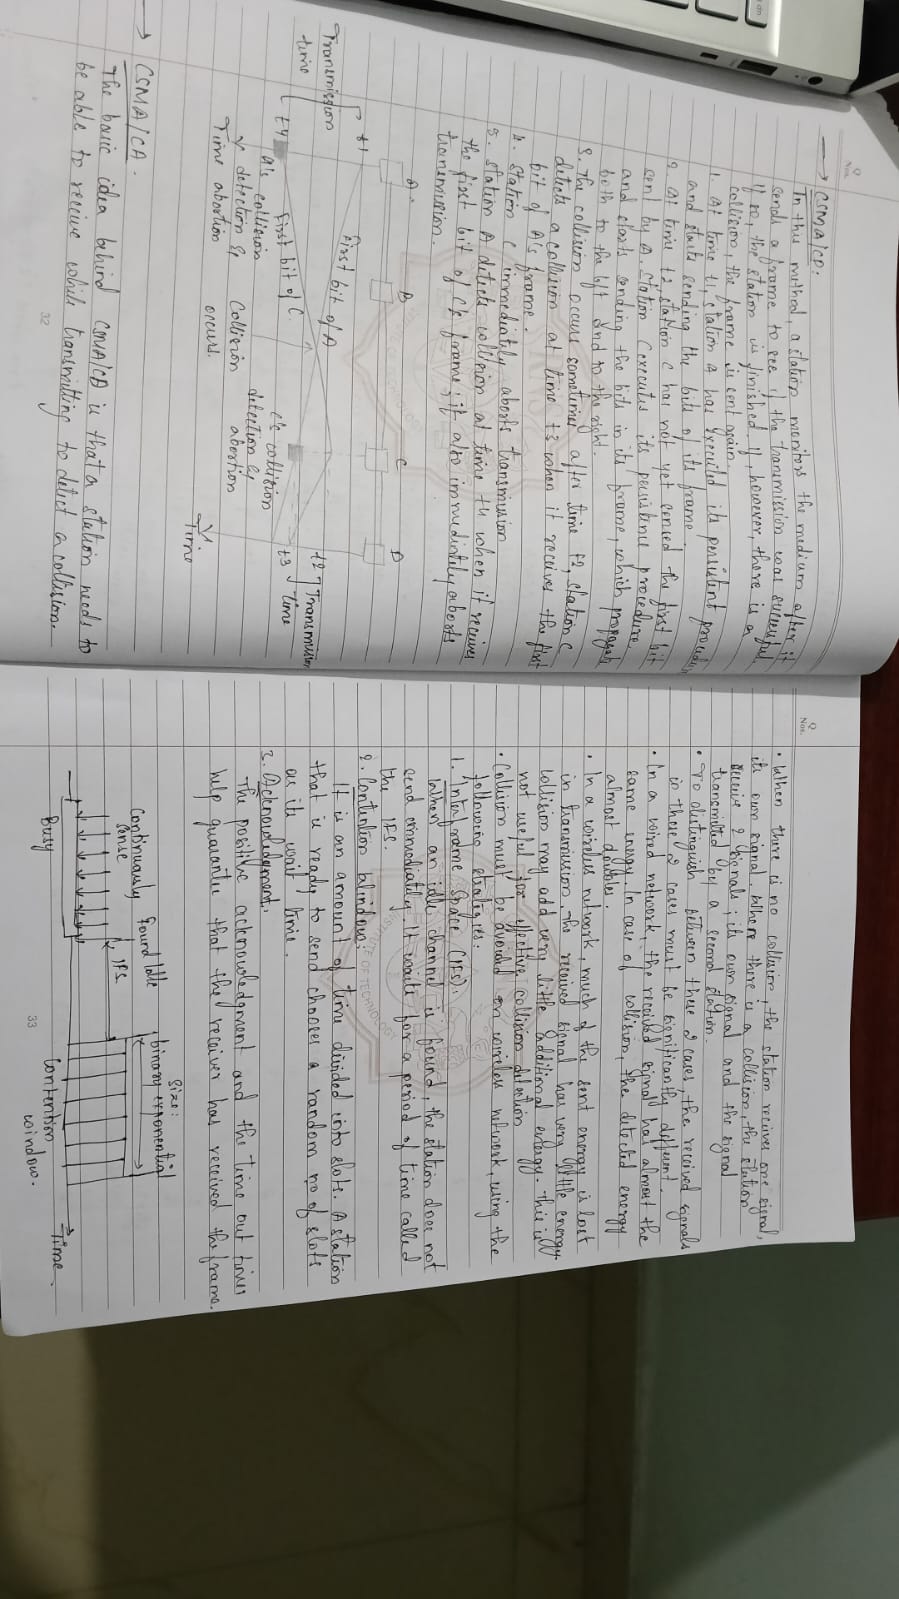 Q
Nos.
→ CSMA/CD:
In this method, a station monitors the medium after it
sends a frame to see if the transmission was successful.
If so, the station is finished. If, however, there is a
collision, the frame is sent again.
1. At time t1, station A has executed its persistent procedure
and starts sending the bits of its frame.
2. At time t2 station C has not yet sensed the first bit
sent by A. Station C executes its persistence procedure
and starts sending the bits in its frame, which propagate
both to the left and to the right.
3. The collision occurs sometimes after time t2, station C
detects a collision at time t3 when it receives the first
bit of A's frame.
4. Station C immediately aborts transmission
5. Station A detects collision at time t4 when it receives
the first bit of C's frame; it also immediately aborts
transmission.
A. B C D
t1
Transmission
time
First bit of A
t2
Transmission
time
First bit of C.
t4
t3
A's collision
detection &
abortion
Time
Collision
occurs.
C's collision
detection &
abortion
Time
→ CSMA/CA.
The basic idea behind CSMA/CD is that a station needs to
be able to receive while transmitting to detect a collision.
32
Q
Nos.
• When there is no collision, the station receives one signal,
its own signal. Where there is a collision, the station
receive 2 signals; its own signal and the signal
transmitted by a second station.
• To distinguish between these 2 cases, the received signals
in these 2 cases must be significantly different.
• In a wired network, the received signal has almost the
same energy. In case of collision, the detected energy
almost doubles.
• In a wireless network, much of the sent energy is lost
in transmission. The received signal has very little energy.
Collision may add very little additional energy. This is
not useful for effective collision detection
• Collision must be avoided on wireless network, using the
following strategies.
1. Interframe Space (IFS):
When an idle channel is found, the station does not
send immediately. It waits for a period of time called
the IFS.
2. Contention Window:
It is an amount of time divided into slots. A station
that is ready to send chooses a random no of slots
as its wait time.
3. Acknowledgment.
The positive acknowledgment and the time out timer
help guarantee that the receiver has received the frame.
Size:
binary exponential
Found Idle
Continuously
sense
IFS
Busy
Contention
window.
Time
33